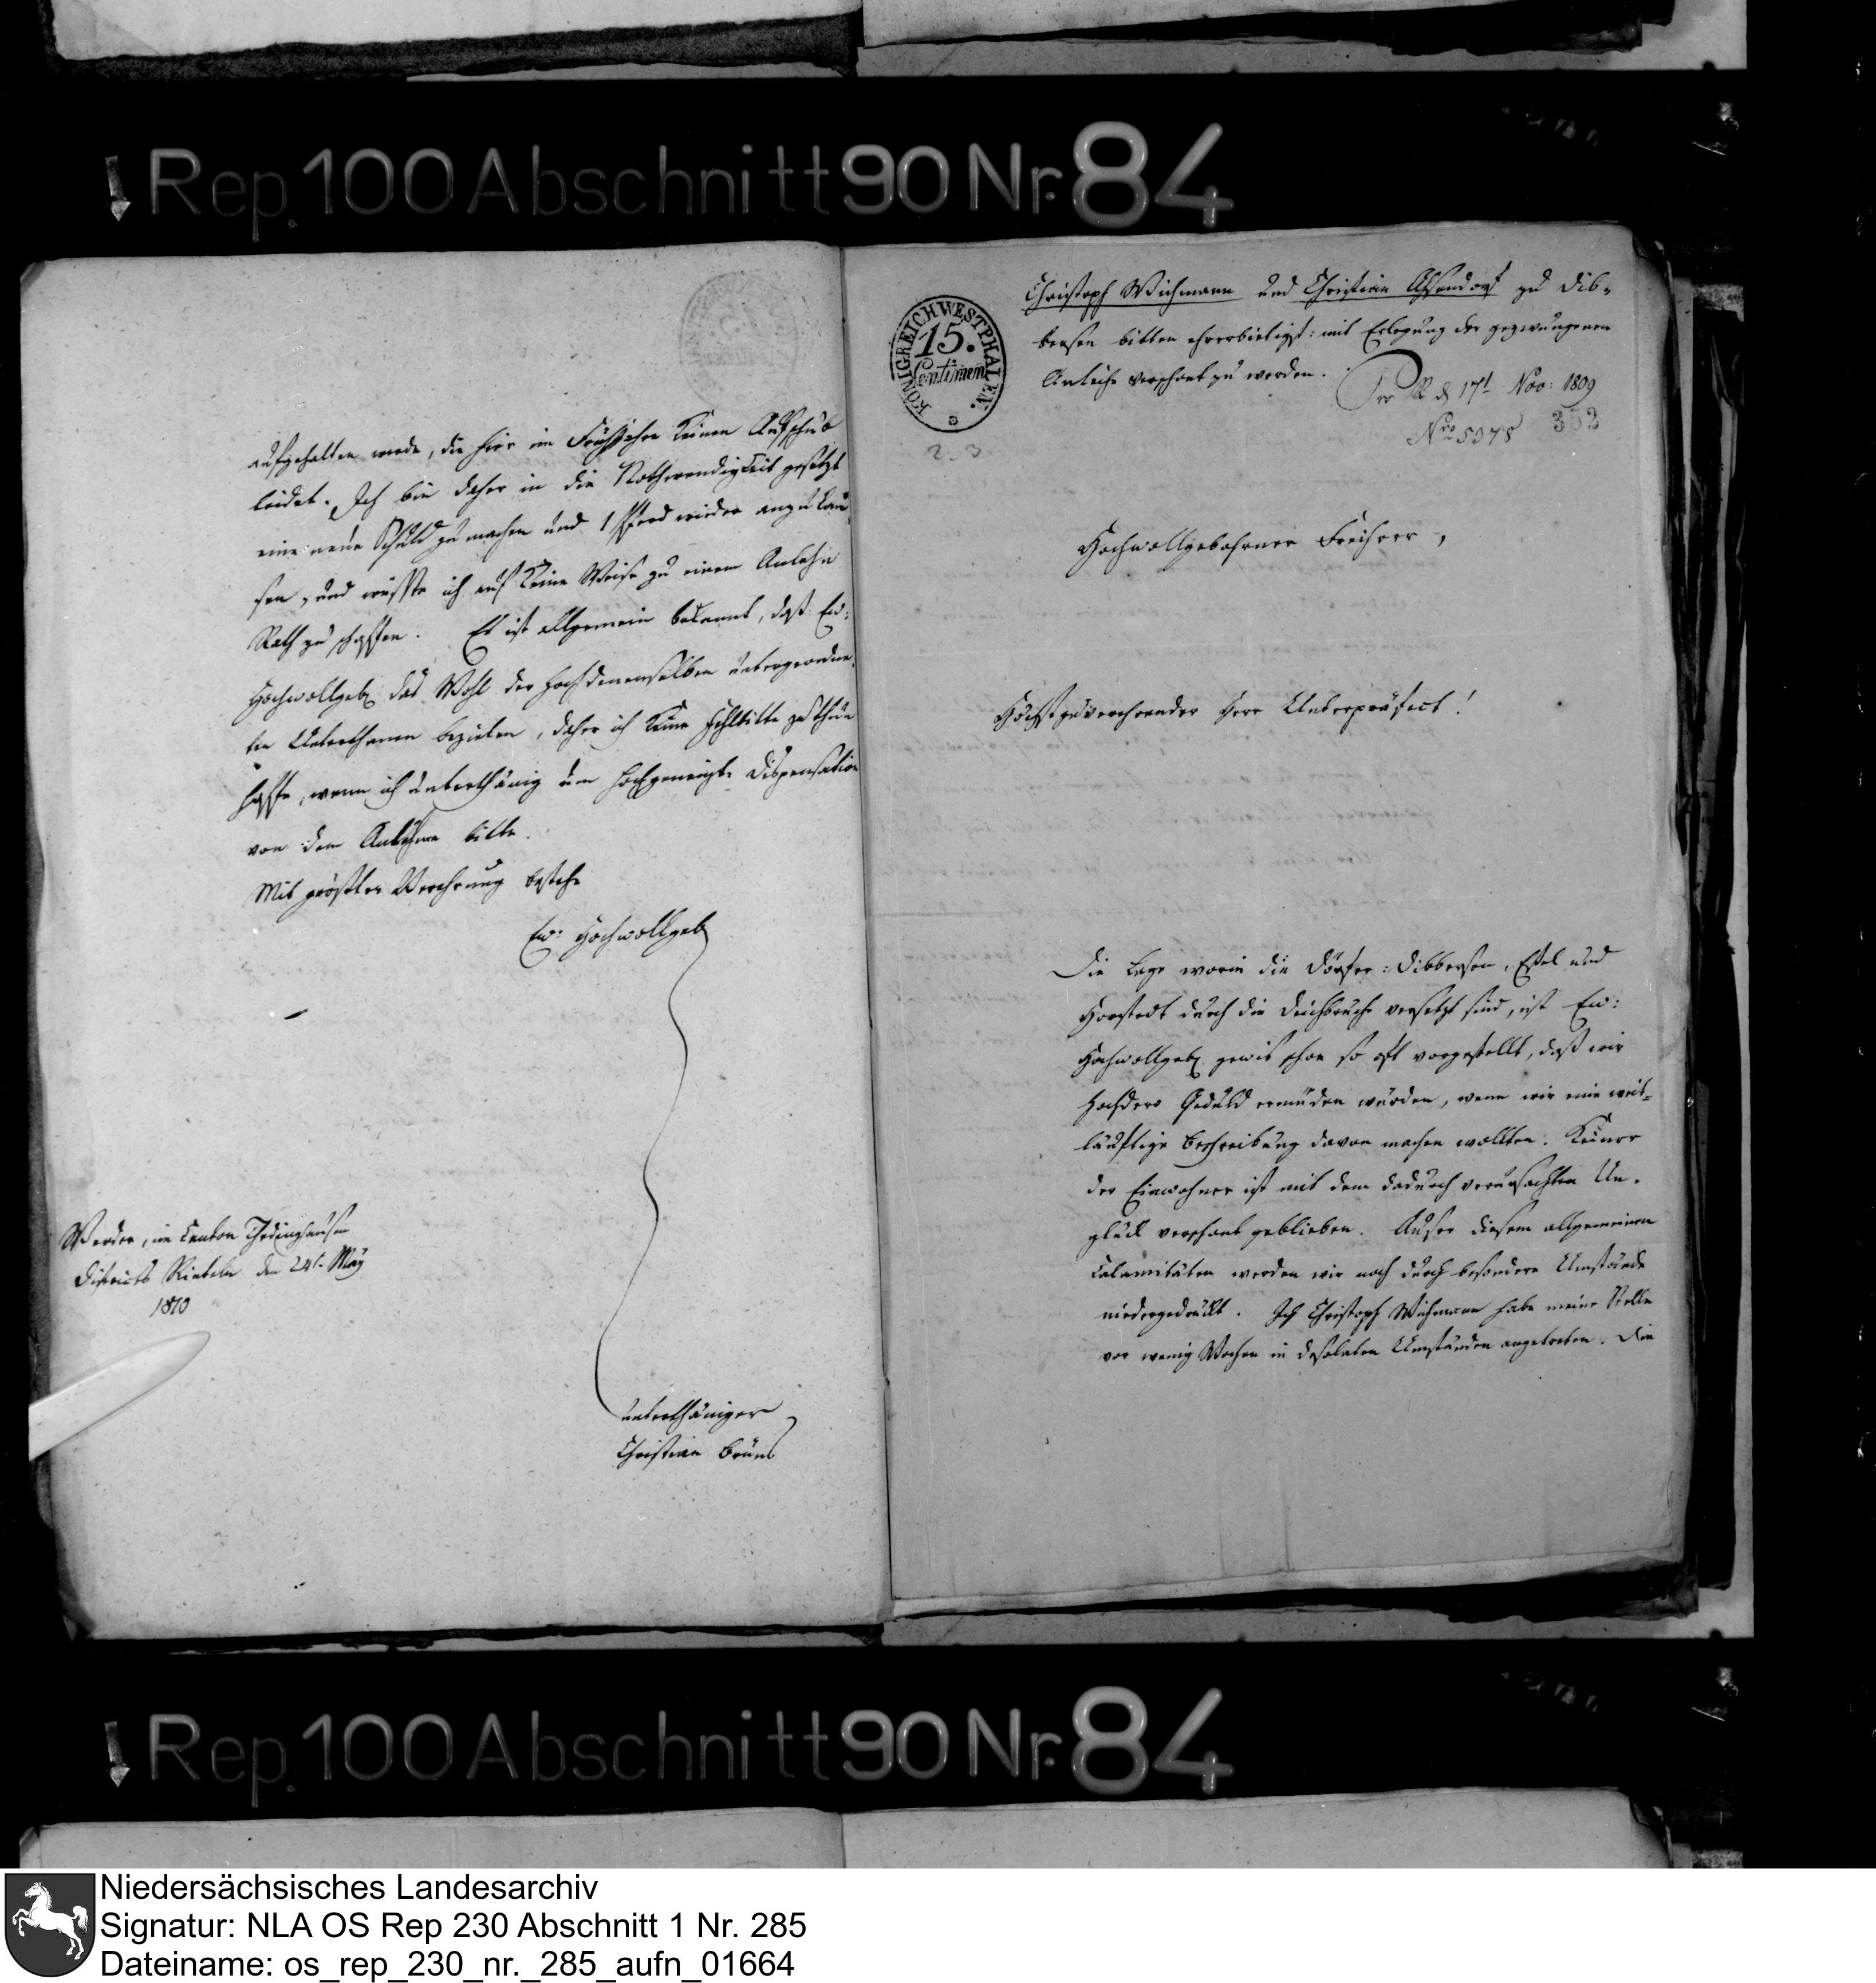 Rep. 100 Abschnitt 90 Nr. 84
aufgehalten werde, die hier im Frühjahre keinen Aufschub
leidet. Ich bin daher in die Nothwendigkeit gesetzt
eine neue Schuld zu machen und 1 Pferd wieder anzukau-
fen, und wüsste ich auf keine Weise zu einem Anlehn
Rath zu schaffen. Es ist allgemein bekannt, daß Ew:
Hochwollgeb das Wohl der hochdenenselben untergeordne-
ten Unterthanen bezielen, daher ich keine Fehlbitte zu thun
hoffe, wenn ich unterthänig um hochgeneigte Dispensation
von dem Anlehne bitte.
Mit größter Verehrung bestehe
Ew: Hochwollgeb
Werder, im Canton Thedinghausen
Districts Rinteln den 24t May
1810
unterthäniger
Christian Bruns
KÖNIGREICH WESTPHALEN.
15.
Centimen
Christoph Wichmann und Christian Ahsendorf zu Dib-
bersen bitten ehrerbietigst: mit Erlegung der gezwungenen
Anleihe verschont zu werden.
R d 17t Nov: 1809
Nro 5078 352
2 3
Hochwollgebohrner Freiherr,
Höchstzuverehrender Herr Unterpräfect!
Die Lage worin die Dörfer: Dibbersen, Eßel und
Horstedt durch die Deichbrüche versetzt sind, ist Ew:
Hochwollgeb gewis schon so oft vorgestellt, daß wir
Hochdero Geduld ermüden würden, wenn wir eine weit-
läuftige Beschreibung davon machen wollten. Keiner
der Einwohner ist mit dem dadurch verursachten Un-
glück verschont geblieben. Auser diesem allgemeinen
Calamitäten werden wir noch durch besondere Umstände
niedergedrückt. Ich Christoph Wichmann habe meine Stelle
vor wenig Wochen in desolaten Umständen angetreten. Die
Rep. 100 Abschnitt 90 Nr. 84
Niedersächsisches Landesarchiv
Signatur: NLA OS Rep 230 Abschnitt 1 Nr. 285
Dateiname: os_rep_230_nr._285_aufn_01664